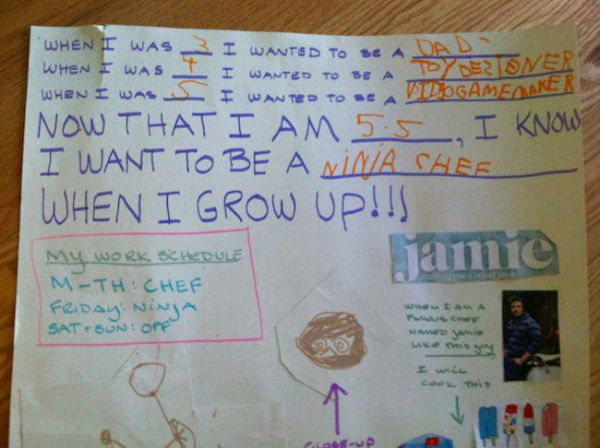 WHEN I WAS 3 I WANTED TO BE A DAD
WHEN I WAS 4 I WANTED TO BE A TOY DEZIONER
WHEN I WAS 5 I WANTED TO BE A VIDOGAMEMAKER
NOW THAT I AM 5.5, I KNOW
I WANT TO BE A NINJA CHEF
WHEN I GROW UP!!!
MY WORK SCHEDULE
M-TH: CHEF
FRIDAY: NINJA
SAT + SUN: OFF
jamie
making you a better cook
WHEN I AM A
FAMOUS CHEF
NAMED JAMIE
LIKE THIS GUY,
I WILL
COOK THIS
CLOSE-UP